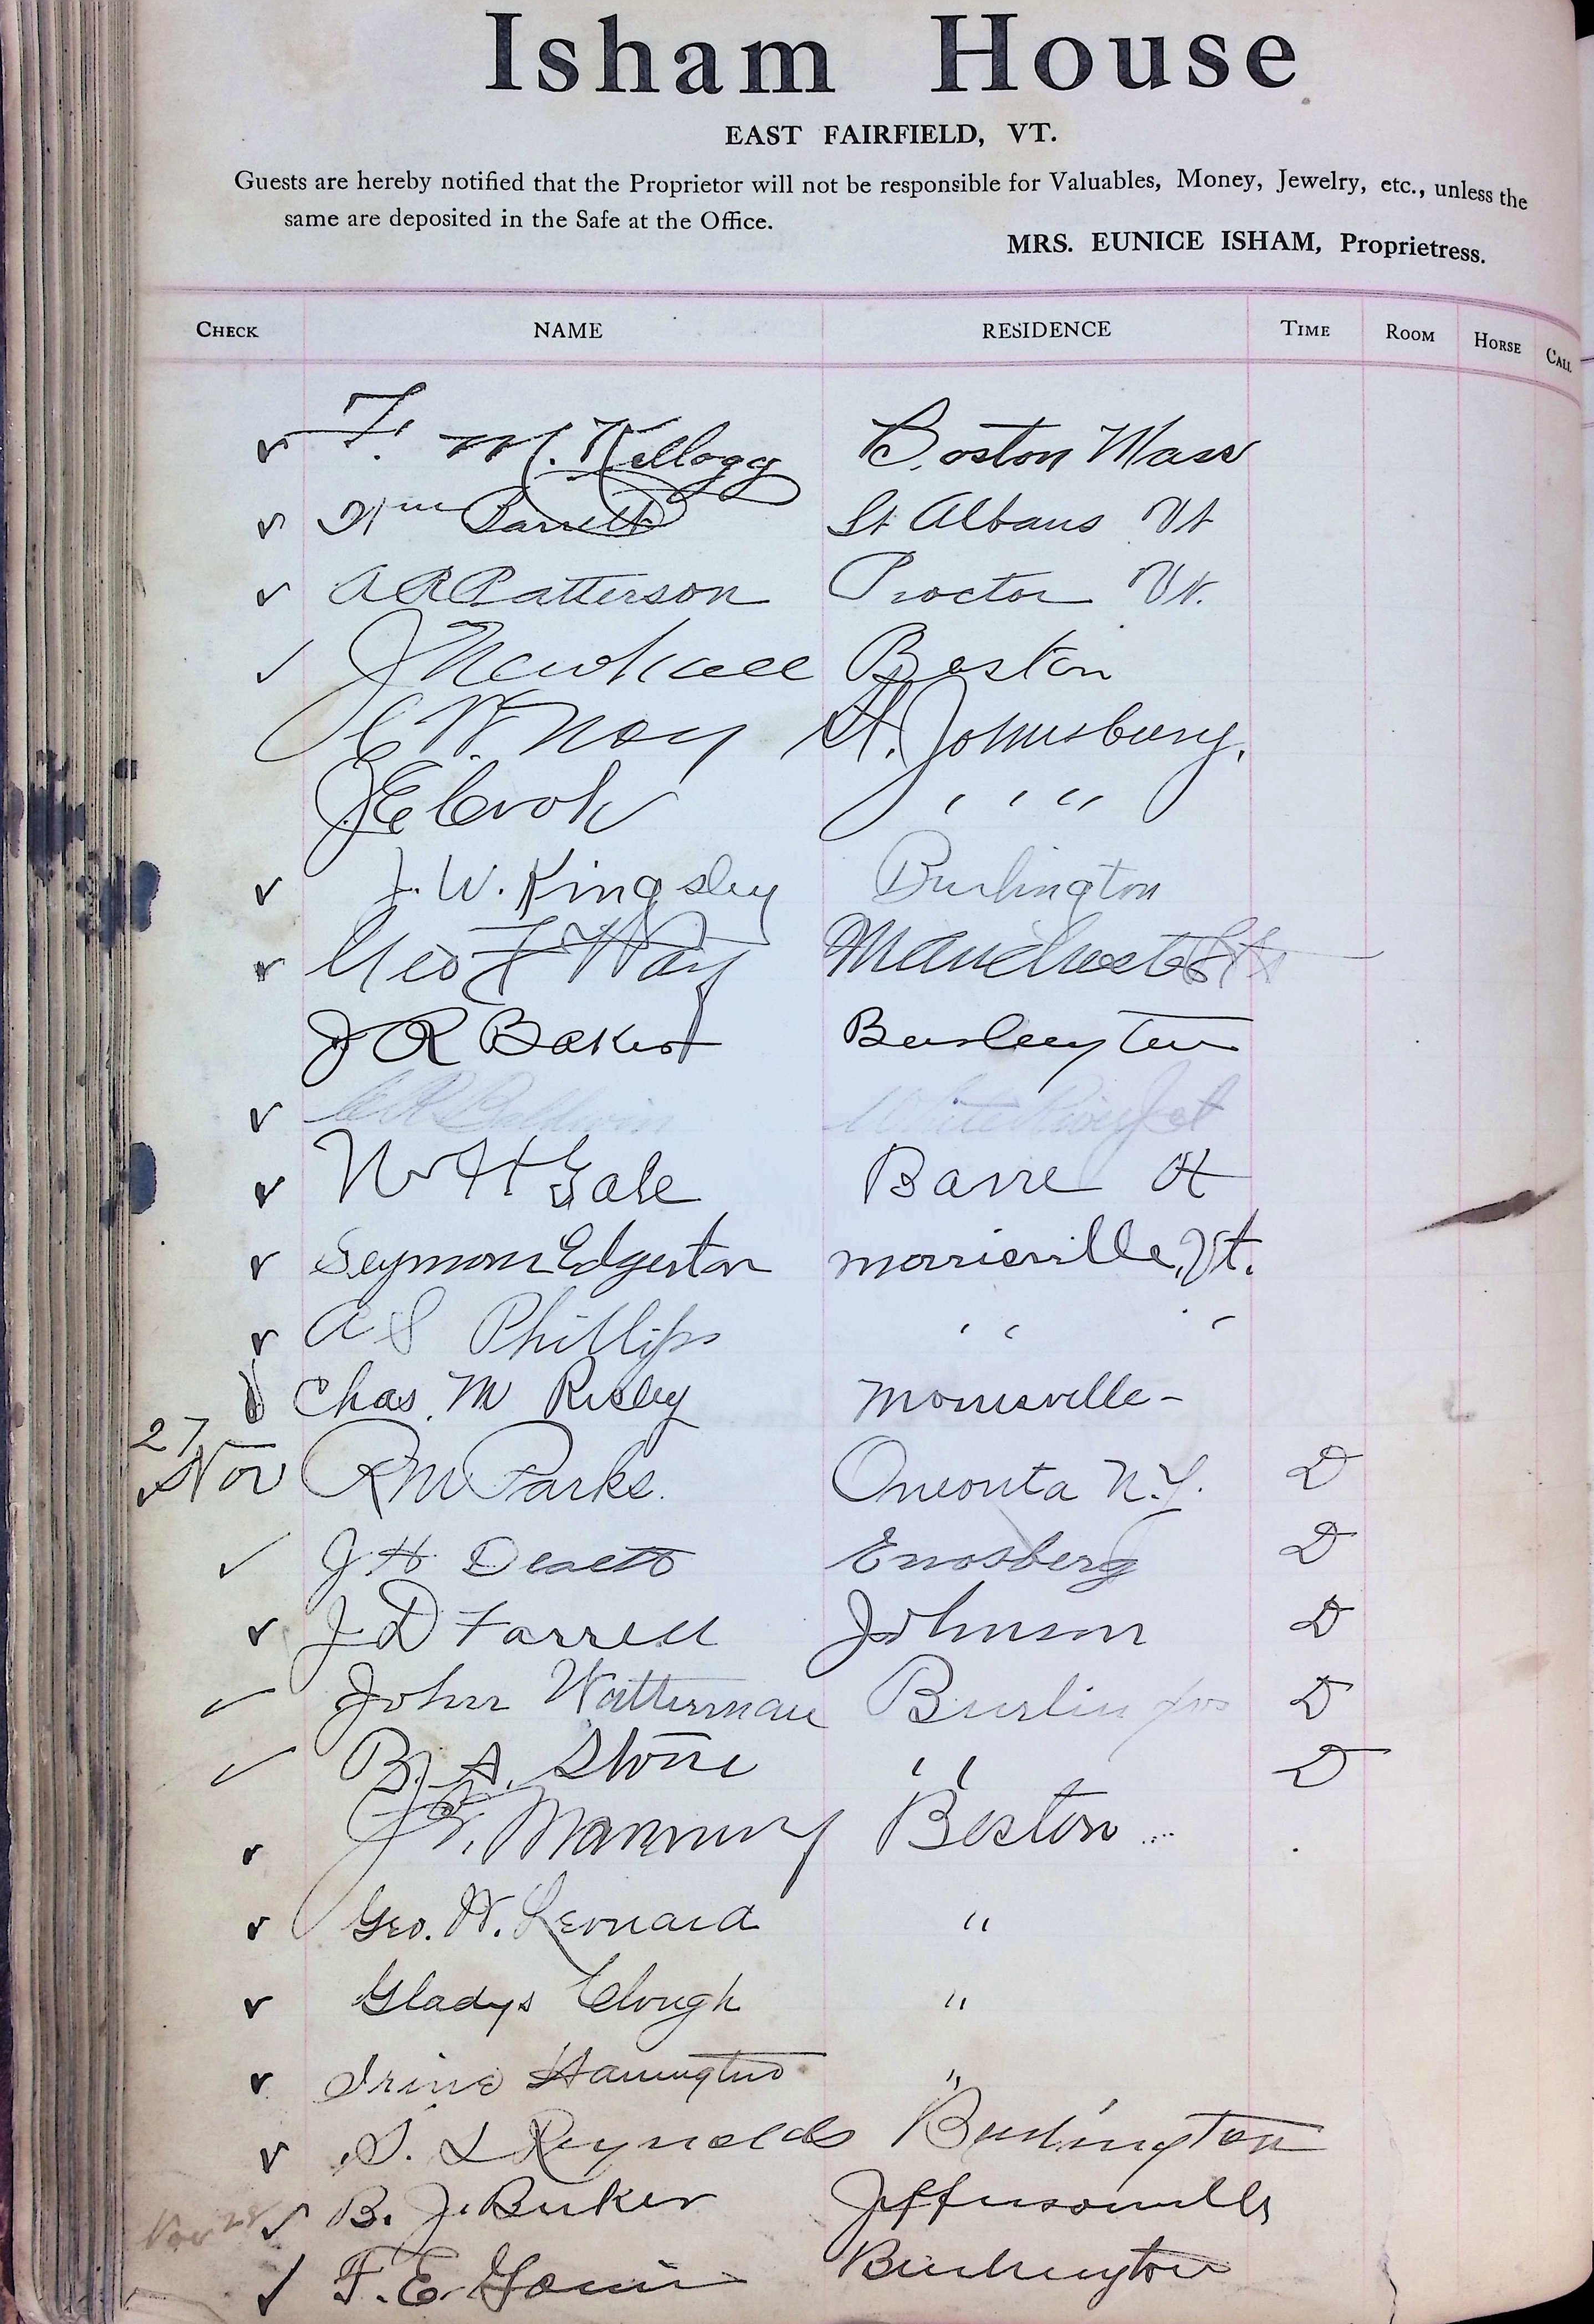 Isham House
EAST FAIRFIELD, VT.
Guests are hereby notified that the Proprietor will not be responsible for Valuables, Money, Jewelry, etc., unless the
same are deposited in the Safe at the Office.
MRS. EUNICE ISHAM, Proprietress.
CHECK NAME RESIDENCE TIME ROOM HORSE CALL
F. M. Kellogg Boston Mass
Wm Barrett St Albans Vt
A R Patterson Proctor Vt.
J Newhall Boston
C W. Noy St. Johnsbury.
J E Crok " "
J. W. Kingsley Burlington
Geo F Way Manchester
J R Baker Burlington
C R Baldwin White River Jct
W H Gale Barre Vt
Seymour Edgerton Morrisville, Vt.
A S Phillips " "
Chas. M Risley Morrisville -
27
Nov R M Parks. Oneonta N.Y. D
J H Enosberg D
J D Farrell Johnson D
John Watterman Burlington D
B. A. Stone " D
J. F. Manning Boston
Geo. H. Leonard "
Gladys Clough "
Irine Harrington "
S. L Reynolds Burlington
Nov 28 B. J. Buker Jeffersonville
F. E. Burlington